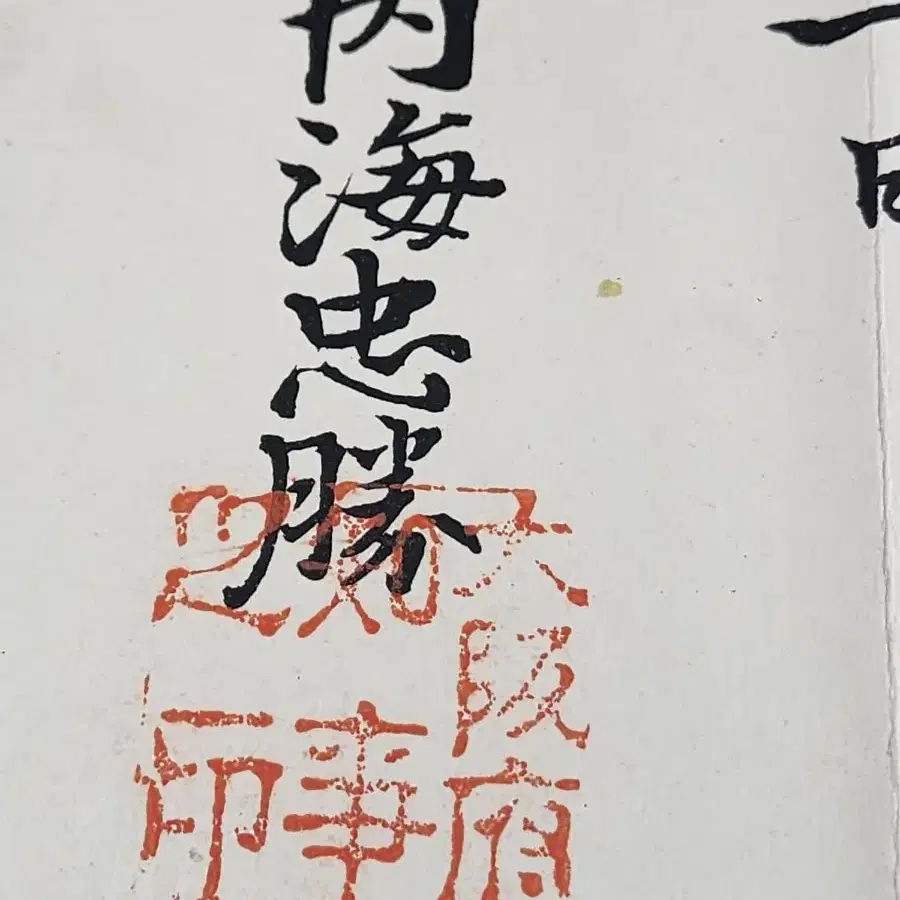 一
内海忠勝
大阪府
知事
之印